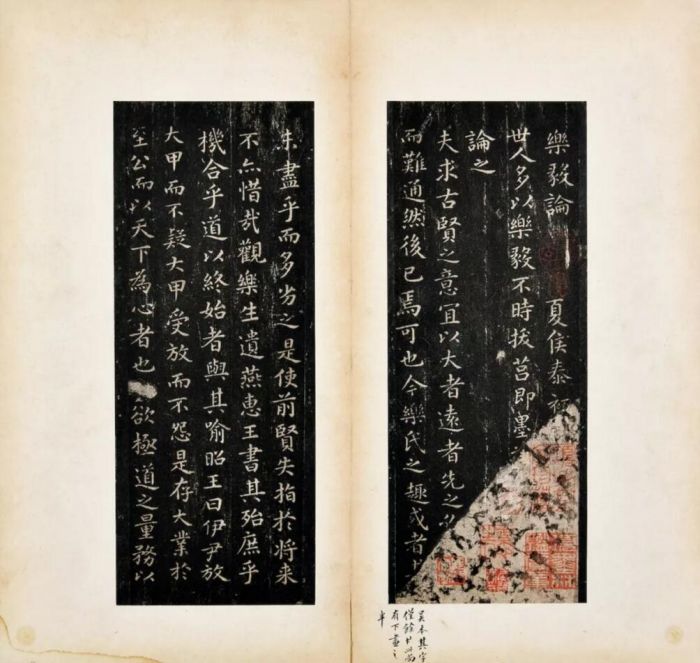 樂毅論 夏侯泰
世人多以樂毅不時拔莒即墨
論之
夫求古賢之意宜以大者遠者先之
而難通然後已焉可也今樂氏之趣或者
未盡乎而多劣之是使前賢失指於將来
不亦惜哉觀樂生遺燕惠王書其殆庶乎
機合乎道以終始者與其喻昭王曰伊尹放
大甲而不疑大甲受放而不怨是存大業於
至公而以天下為心者也 欲極道之量務以
吴本其字
僅餘廿此尚
有下畫之
半